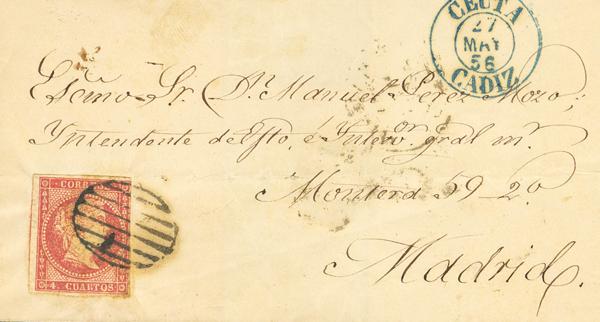 CEUTA
27
MAY
56
CADIZ
Escmo Sr. Dn. Manuel Perez Mozo,
Yntendente de é gral mr.
Montera 59-2o.
Madrid.
CORREOS
4. CUARTOS